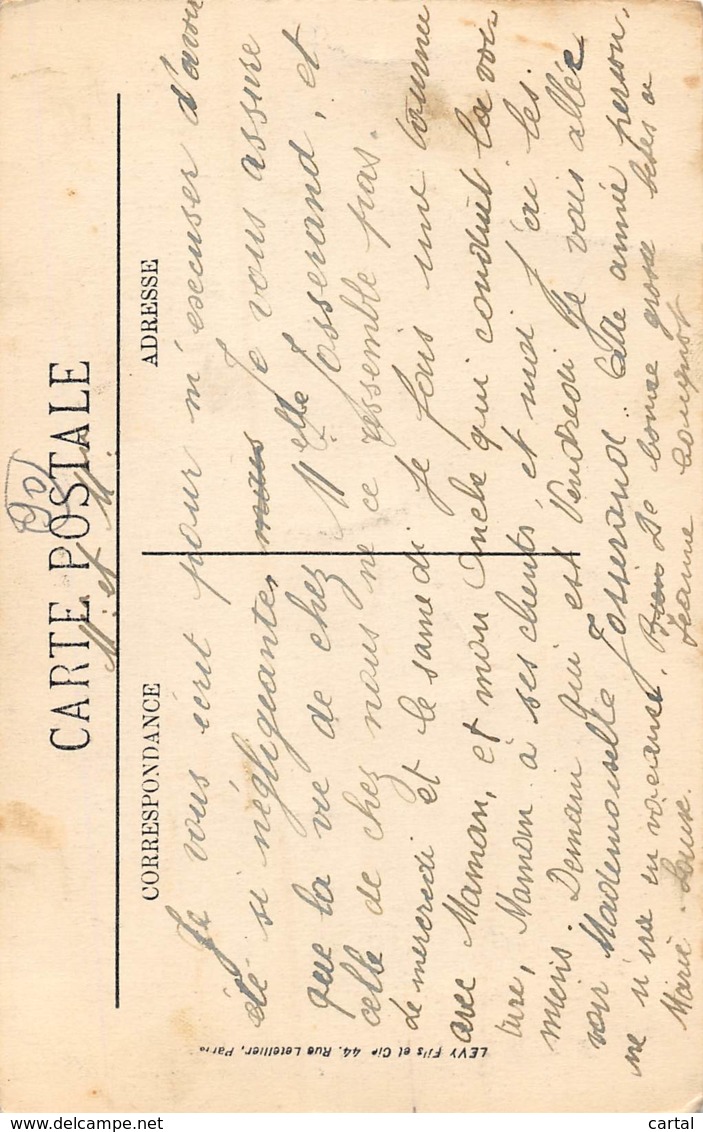 90
CARTE POSTALE
M. et M.
CORRESPONDANCE
ADRESSE
Je vous écrit pour m'éxcuser d'avoir
été si négligeante, mais Je vous assure
que la vie de chez Melle Josserand, et
celle de chez nous ne ce ressemble pas.
Le mercredi et le samedi je fais une tournée
avec Maman, et mon Oncle qui conduit la voi
ture, Maman à ses clients et moi j'ai les
miens. Demain qui est Vendredi Je vais allée
voir Mademoiselle Josserand. Cette année person
ne n'ira en vacanse. Bien De bonne grosse bises a
Marie. Louise. Jeanne
LEVY Fils et Cie 44. Rue Letellier, Paris
cartal